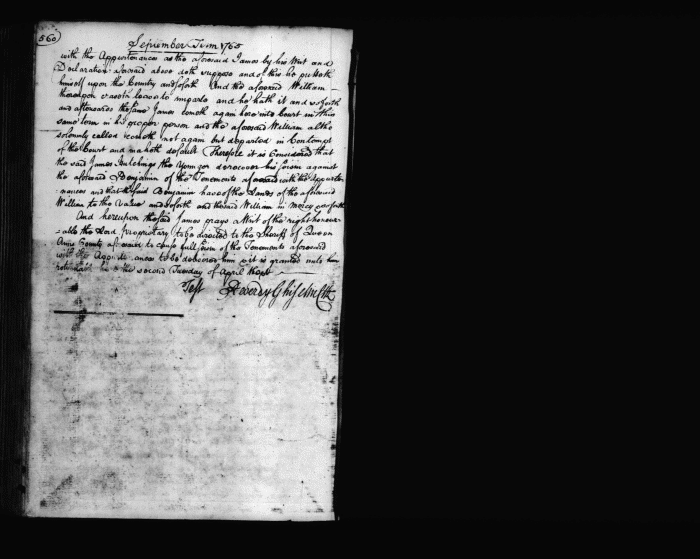 560
September Term 1765
with the Appurtenances as the aforesaid James by his Writ and
Declaration aforesaid above doth suppose and of this he putteth
himself upon the Country and soforth And the aforesaid William
thereupon craveth leave to imparle and he hath it and soforth
and afterwards the same James cometh again here into Court in this
same term in his proper person and the aforesaid William altho
solemnly called cometh not again but departed in Contempt
of the Court and maketh default Therefore it is Considered that
the said James Hutchings the Younger do recover his seisin against
the aforesaid Benjamin of the Tenements aforesaid with the Appurte-
nances and that the said Benjamin have of the Lands of the aforesaid
William to the value and soforth and the said William in Mercy and soforth
And hereupon the said James prays a Writ of the right honor-
able the Lord proprietary to be directed to the Sheriff of Queen
Anns County aforesaid to cause full seisin of the Tenements aforesaid
with the Appurtenances to be delivered him & it is granted unto him
returnable here the second Tuesday of April Next
Test Reverdy Ghiselin Clk